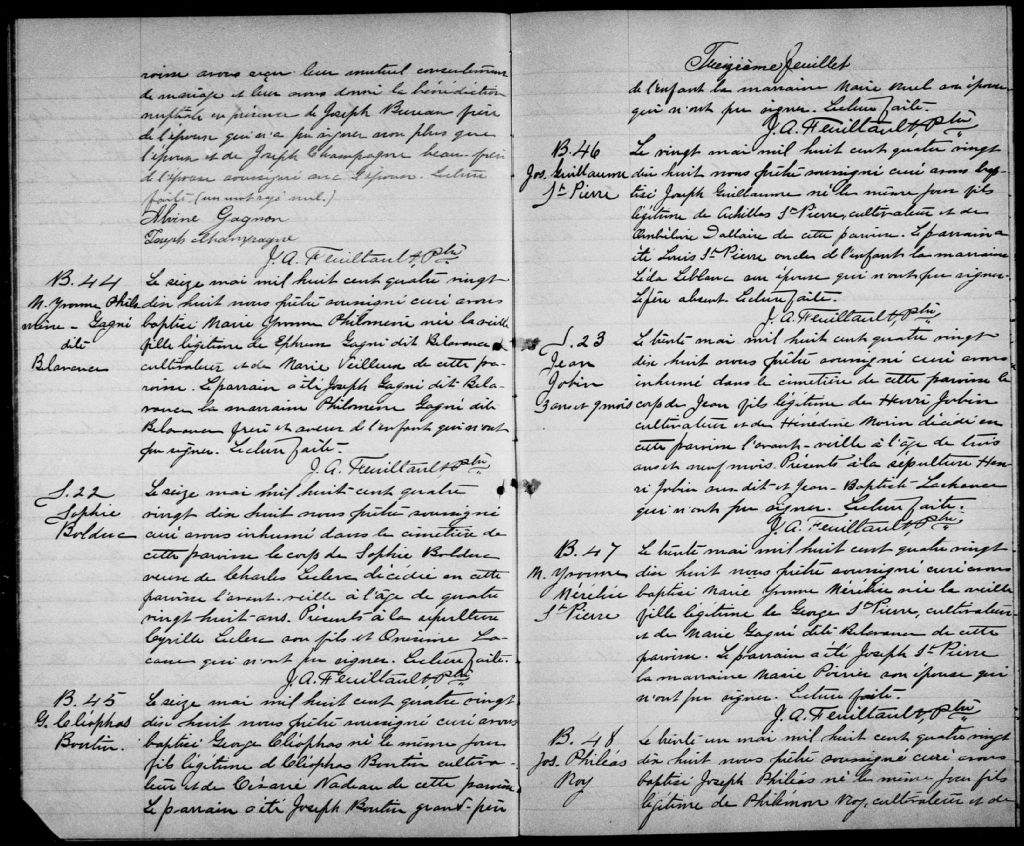 roisse avons reçu leur mutuel consentement
de mariage et leur avons donné la bénédiction
nuptiale en présence de Joseph Bureau frère
de l'épouse qui n'a pu signer non plus que
l'épouse et de Joseph Champagne beau-père
de l'épouse soussigné avec l'époux. Lecture
faite (un mot rejé nul.)
Alvine Gagnon
Joseph Champagne
J. A. Feuiltault, Ptre
B. 44
M. Yvonne Philo
mène - Gagné
dite
Belavance
Le seize mai mil huit cent quatre vingt
dix huit nous prêtre soussigné curé avons
baptisé Marie Yvonne Philomène née la veille
fille légitime de Ephrem Gagné dit Belavance
cultivateur et de Marie Veilleux de cette pa-
roisse. Le parrain a été Joseph Gagné dit Bela-
vance la marraine Philomène Gagné dite
Belavance frère et soeur de l'enfant qui n'ont
pu signer. Lecture faite.
J. A. Feuiltault, Ptre
S. 22
Sophie
Bolduc
Le seize mai mil huit cent quatre
vingt dix huit nous prêtre soussigné
curé avons inhumé dans le cimetière de
cette paroisse le corps de Sophie Bolduc
veuve de Charles Leclerc décédée en cette
paroisse l'avant-veille à l'âge de quatre
vingt huit ans. Présents à la sépulture
Cyrille Leclerc son fils et Onésime La-
casse qui n'ont pu signer. Lecture faite.
J. A. Feuiltault, Ptre
B. 45
G. Cléophas
Boutin.
Le seize mai mil huit cent quatre vingt
dix huit nous prêtre soussigné curé avons
baptisé George Cléophas né le même jour
fils légitime de Cléophas Boutin cultiva-
teur et de Césarie Nadeau de cette paroisse
Le parrain a été Joseph Boutin grand-père
Treizième feuillet
de l'enfant la marraine Marie son épouse
qui n'ont pu signer. Lecture faite.
J. A. Feuiltault, Ptre
B. 46
Jos. Guillaume
St Pierre
Le vingt mai mil huit cent quatre vingt
dix huit nous prêtre soussigné curé avons bap-
tisé Joseph Guillaume né le même jour fils
légitime de Achillas St Pierre, cultivateur et de
Ombéline Dallaire de cette paroisse. Le parrain a
été Louis St Pierre oncle de l'enfant la marraine
Léda Leblanc son épouse qui n'ont pu signer.
Le père absent. Lecture faite.
J. A. Feuiltault, Ptre
S. 23
Jean
Jobin
3 ans et 9 mois
Le trente mai mil huit cent quatre vingt
dix huit nous prêtre soussigné curé avons
inhumé dans le cimetière de cette paroisse le
corps de Jean fils légitime de Henri Jobin
cultivateur et de Hénédine Morin décédé en
cette paroisse l'avant-veille à l'âge de trois
ans et neuf mois. Présents à la sépulture Hen-
ri Jobin sus-dit et Jean-Baptiste Lachance
qui n'ont pu signer. Lecture faite.
J. A. Feuiltault, Ptre
B. 47
M. Yvonne
Mérilie
St Pierre
Le trente mai mil huit cent quatre vingt-
dix huit nous prêtre soussigné curé avons
baptisé Marie Yvonne Mérilie née la veille
fille légitime de George St Pierre, cultivateur
et de Marie Gagné dite Belavance de cette
paroisse. Le parrain a été Joseph St Pierre
la marraine Marie Poirier son épouse qui
n'ont pu signer. Lecture faite.
J. A. Feuiltault, Ptre
B. 48
Jos. Philéas
Roy
Le trente un mai mil huit cent quatre vingt
dix huit nous prêtre soussigné curé avons
baptisé Joseph Philéas né le même jour fils
légitime de Philémon Roy, cultivateur et de